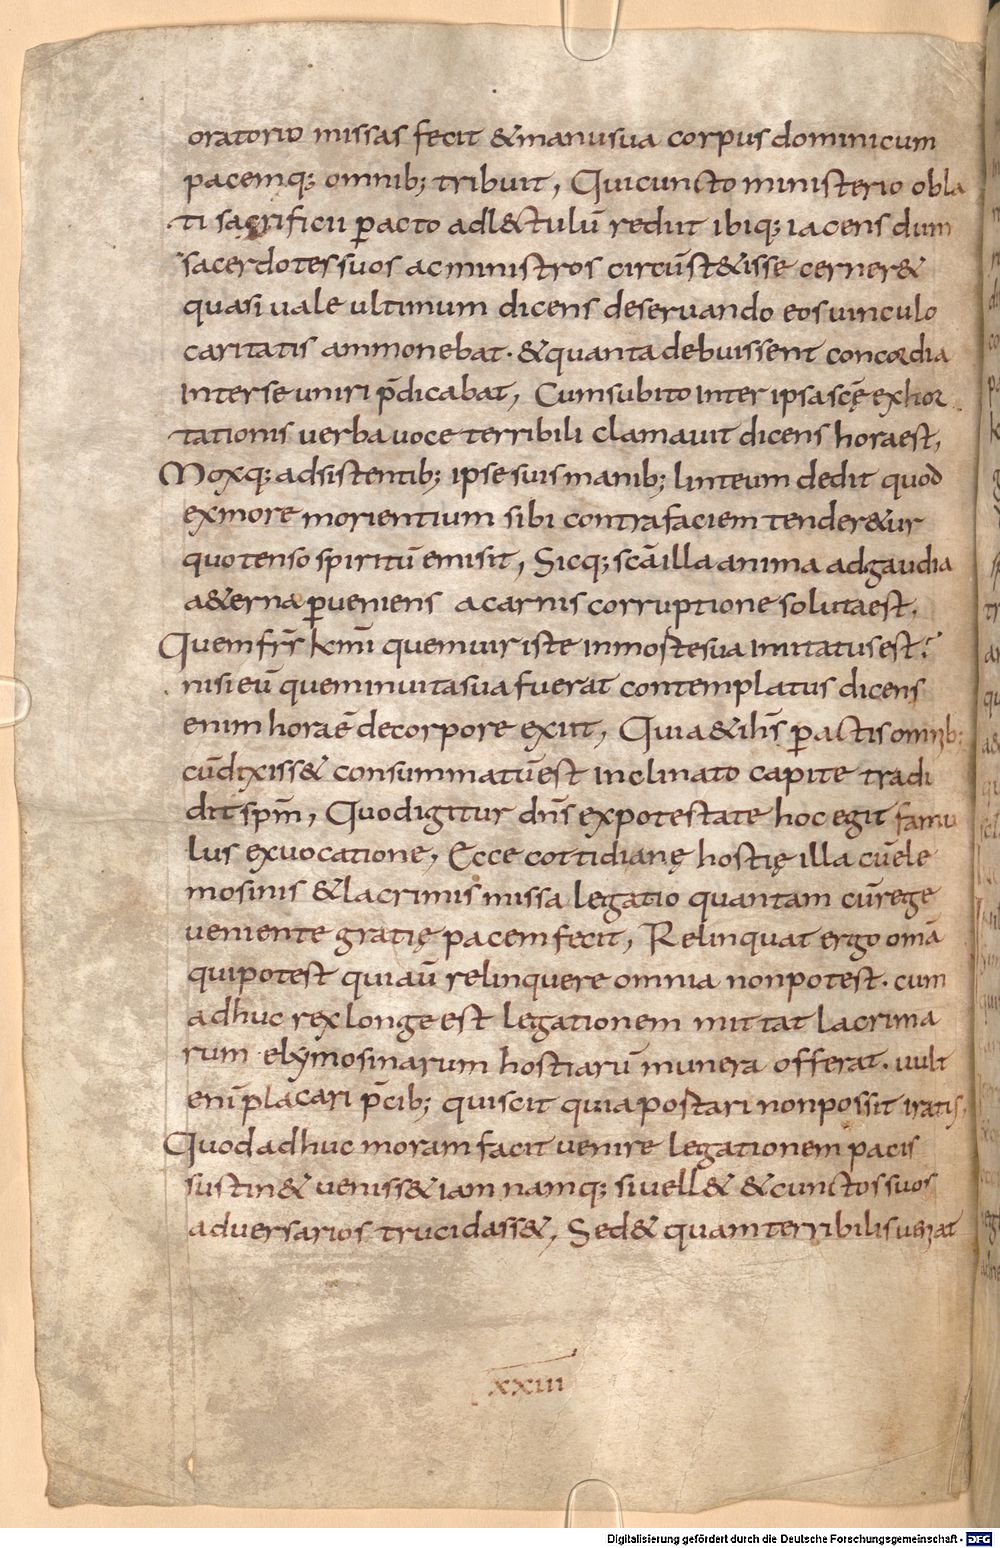 oratorio missas fecit &manusua corpus dominicum
pacemq; omnib; tribuit, Quicuncto ministerio obla
ti sacrificii p̄acto adl&tulū rediit ibiq; iacens dum
sacerdotes suos acministros circūst&isse cerner&
quasi uale ultimum dicens deseruando eos uinculo
caritatis ammonebat· &quanta debuissent concordia
inter se uniri p̄dicabat, Cumsubito inter ipsa scę exhor
tationis uerba uoce terribili clamauit dicens hora est,
Moxq; adsistentib; ipse suis manib; linteum dedit quod
exmore morientium sibi contra faciem tender&ur
quo tenso spiritū emisit, Sicq; scā illa anima adgaudia
a&erna p̄ueniens a carnis corruptione soluta est.
Quem frs̄ kmī quem uir iste in moste sua imitatus est?
nisi eū quem inuita sua fuerat contemplatus dicens
enim hora ē de corpore exiit, Quia & ihs̄ p̄actis omib;
cū dixiss& consummatū est inclinato capite tradi
dit spm̄, Quod igitur dns̄ expotestate hoc egit famu
lus exuocatione, Ecce cottidianę hostię illa cū ele
mosinis & lacrimis missa legatio quantam cū rege
ueniente gratię pacem fecit, Relinquat ergo omā
qui potest qui aū relinquere omnia non potest· cum
adhuc rex longe est legationem mittat lacrima
rum elymosinarum hostiarū munera offerat· uult
enī placari p̄cib; qui scit quia postari non possit iratis,
Quod adhuc moram facit uenire legationem pacis
sustin& ueniss& iam namq; si uell& & cunctos suos
aduersarios trucidass&, Sed & quam terribilis ueniat
xxiii
Digitalisierung gefördert durch die Deutsche Forschungsgemeinschaft - DFG